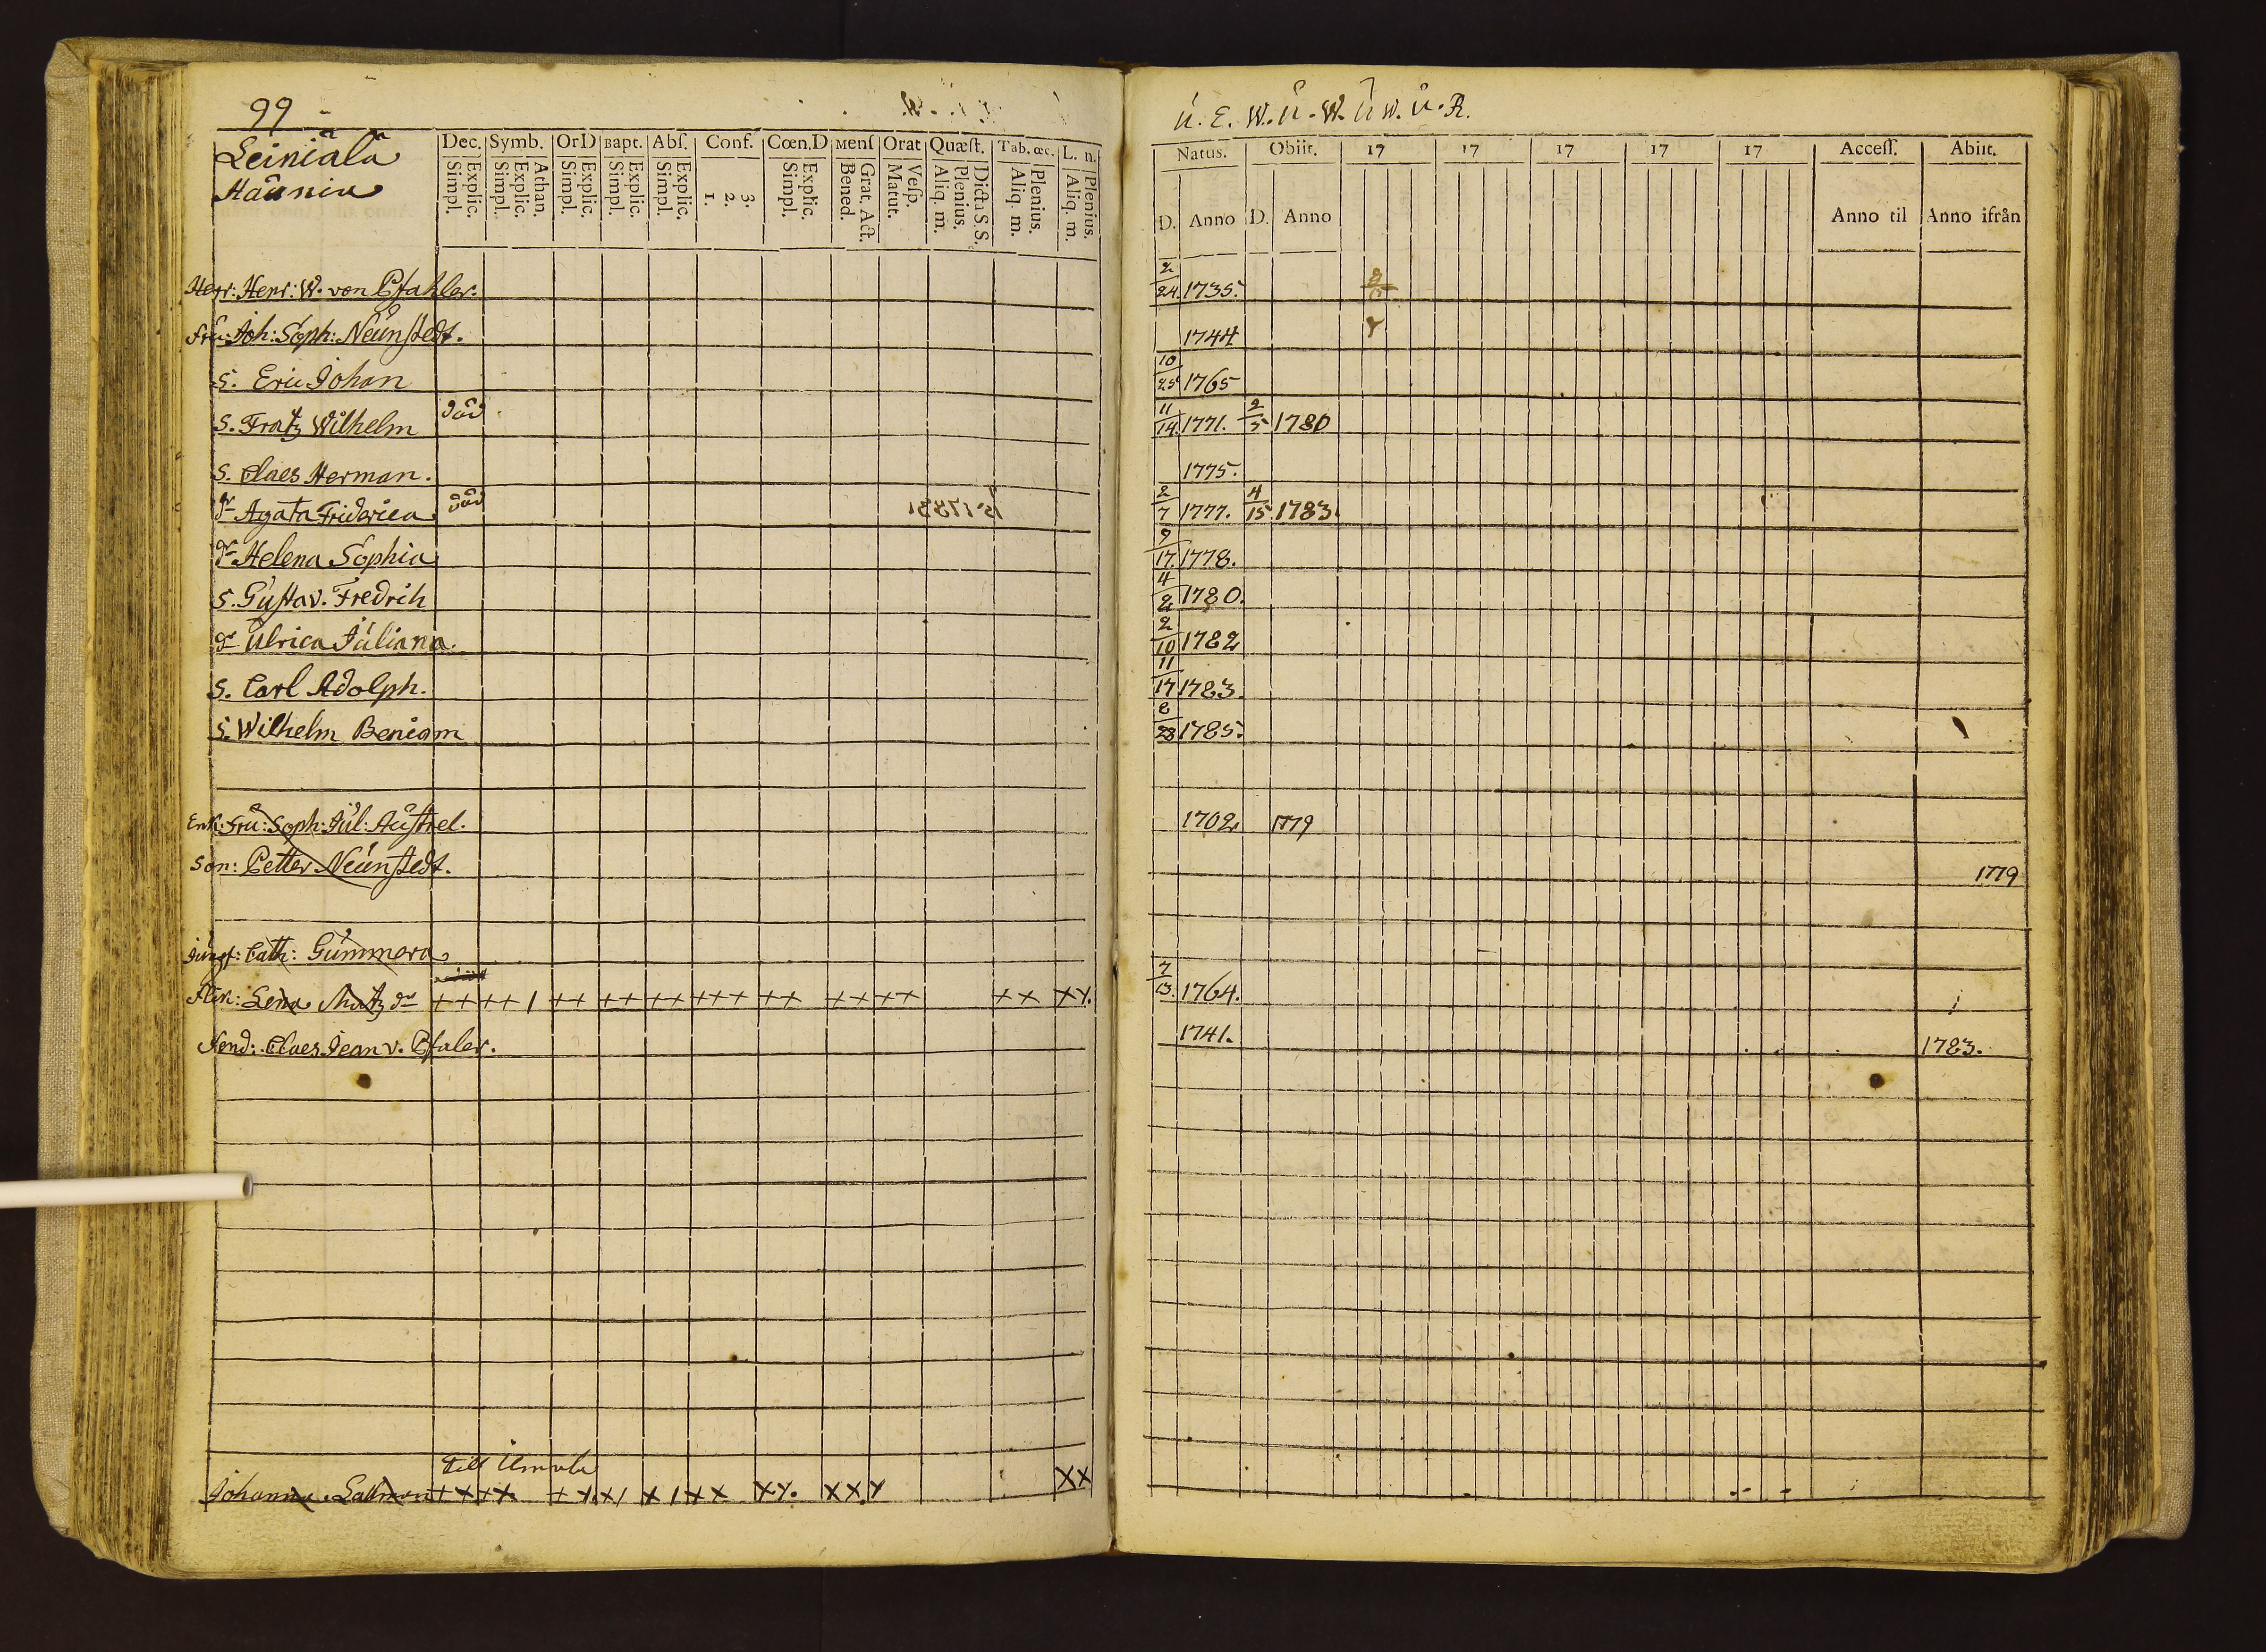 99
Leiniälä
Haunia
Dec. Symb. OrD Bapt. Abſ. Conf. Cœn.D Menſ Orat Quæſt. Tab. œc. L. n.
Simpl. Explic. Simpl. Explic. Athan. Simpl. Explic. Simpl. Explic. Simpl. Explic. 1. 2. 3. Simpl. Explic. Bened. Grat. Act. Matut. Veſp. Aliq. m. Plenius. Dicta S. S. Aliq. m. Plenius. Aliq. m. Plenius.
Herr: Henr: W. von Pfahler.
Fru: Joh: Soph: Neunstedt.
S. Eric Johan
S. Fratz Wilhelm död
S. Claes Herman.
dr Agata Friderica död
dr Helena Sophia
S. Gustav. Fredrih
dr Ulrica Juliana.
S. Carl Adolph.
S. Wilhelm Beniam
Enk: Fru: Soph: Jul: Austrel.
Son: Petter Neunstedt.
Jungf: Cath: Gummera
Flik: Lena Matz dr ++ ++ 1 ++ ++ ++ +++ ++ ++ ++ ++ ++.
Claes Jean v. Pfaler.
till Umula
Johanna ++ ++ XX. XXX XX
U. E. W. U. W. U W. U. R.
Natus. Obiit. 17 17 17 17 17 Acceſſ. Abiit.
D. Anno D. Anno Anno til Anno ifrån
2/24. 1735.
1744
10/25 1765
11/14. 1771. 2/5 1780
1775.
2/7 1777. 4/15 1783.
9/17. 1778.
4/2 1780.
2/10 1782
11/17 1783.
8/28 1785.
1702 1779
1779
7/13. 1764.
1741. 1783.